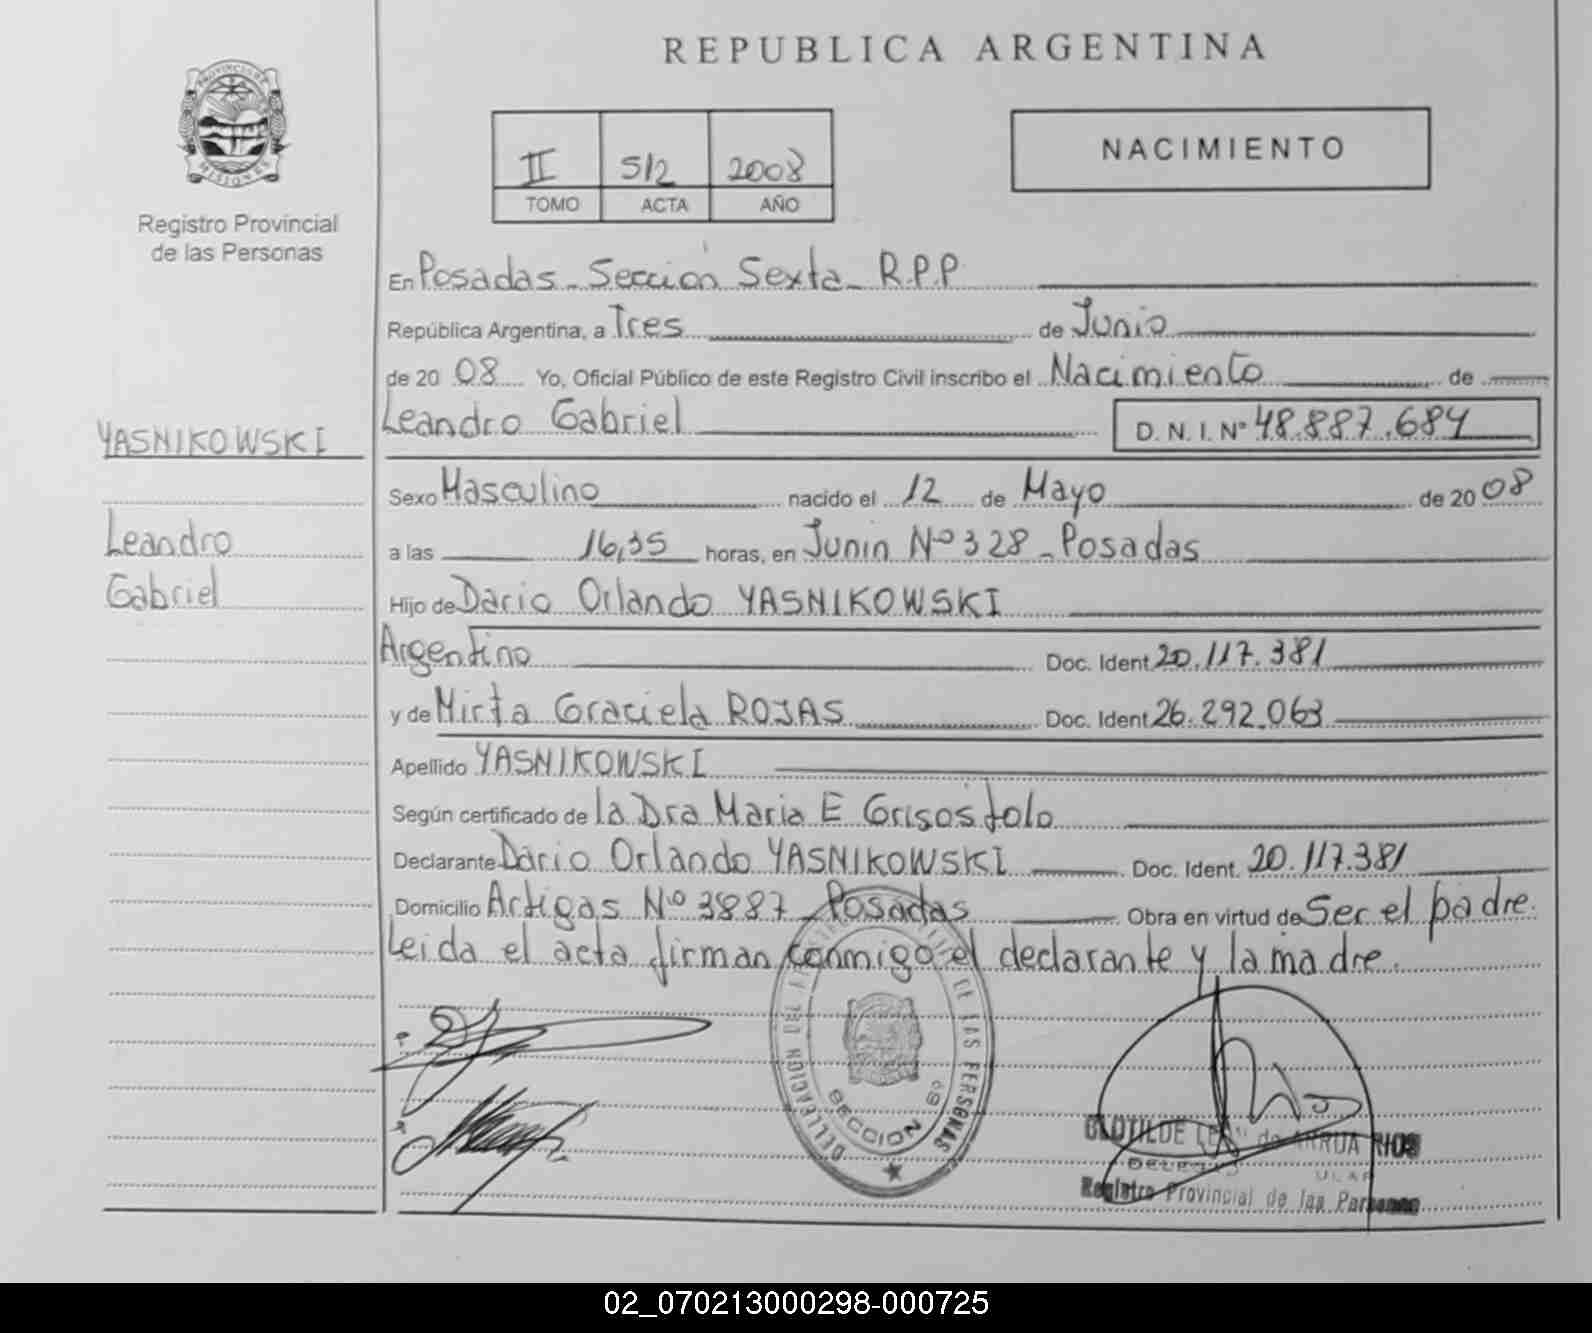 REPUBLICA ARGENTINA
PROVINCIA DE
MISIONES
Registro Provincial
de las Personas
II 512 2008
TOMO ACTA AÑO
NACIMIENTO
En Posadas - Sección Sexta - R.P.P
República Argentina, a Tres de Junio
de 20 08 Yo, Oficial Público de este Registro Civil inscribo el Nacimiento de
Leandro Gabriel D.N.I. Nº 48.887.684
YASNIKOWSKI
Leandro
Gabriel
Sexo Masculino nacido el 12 de Mayo de 20 08
a las 16,35 horas, en Junin Nº 328 - Posadas
Hijo de Dario Orlando YASNIKOWSKI
Argentino Doc. Ident 20.117.381
y de Mirta Graciela ROJAS Doc. Ident 26.292.063
Apellido YASNIKOWSKI
Según certificado de la Dra Maria E Grisostolo
Declarante Dario Orlando YASNIKOWSKI Doc. Ident. 20.117.381
Domicilio Artigas Nº 3887 - Posadas Obra en virtud de Ser el padre.
Leida el acta firman conmigo el declarante y la madre.
DE LAS PERSONAS
SECCION 6º
CLOTILDE de ARRUA RIOS
Registro Provincial de las Personas
02_070213000298-000725